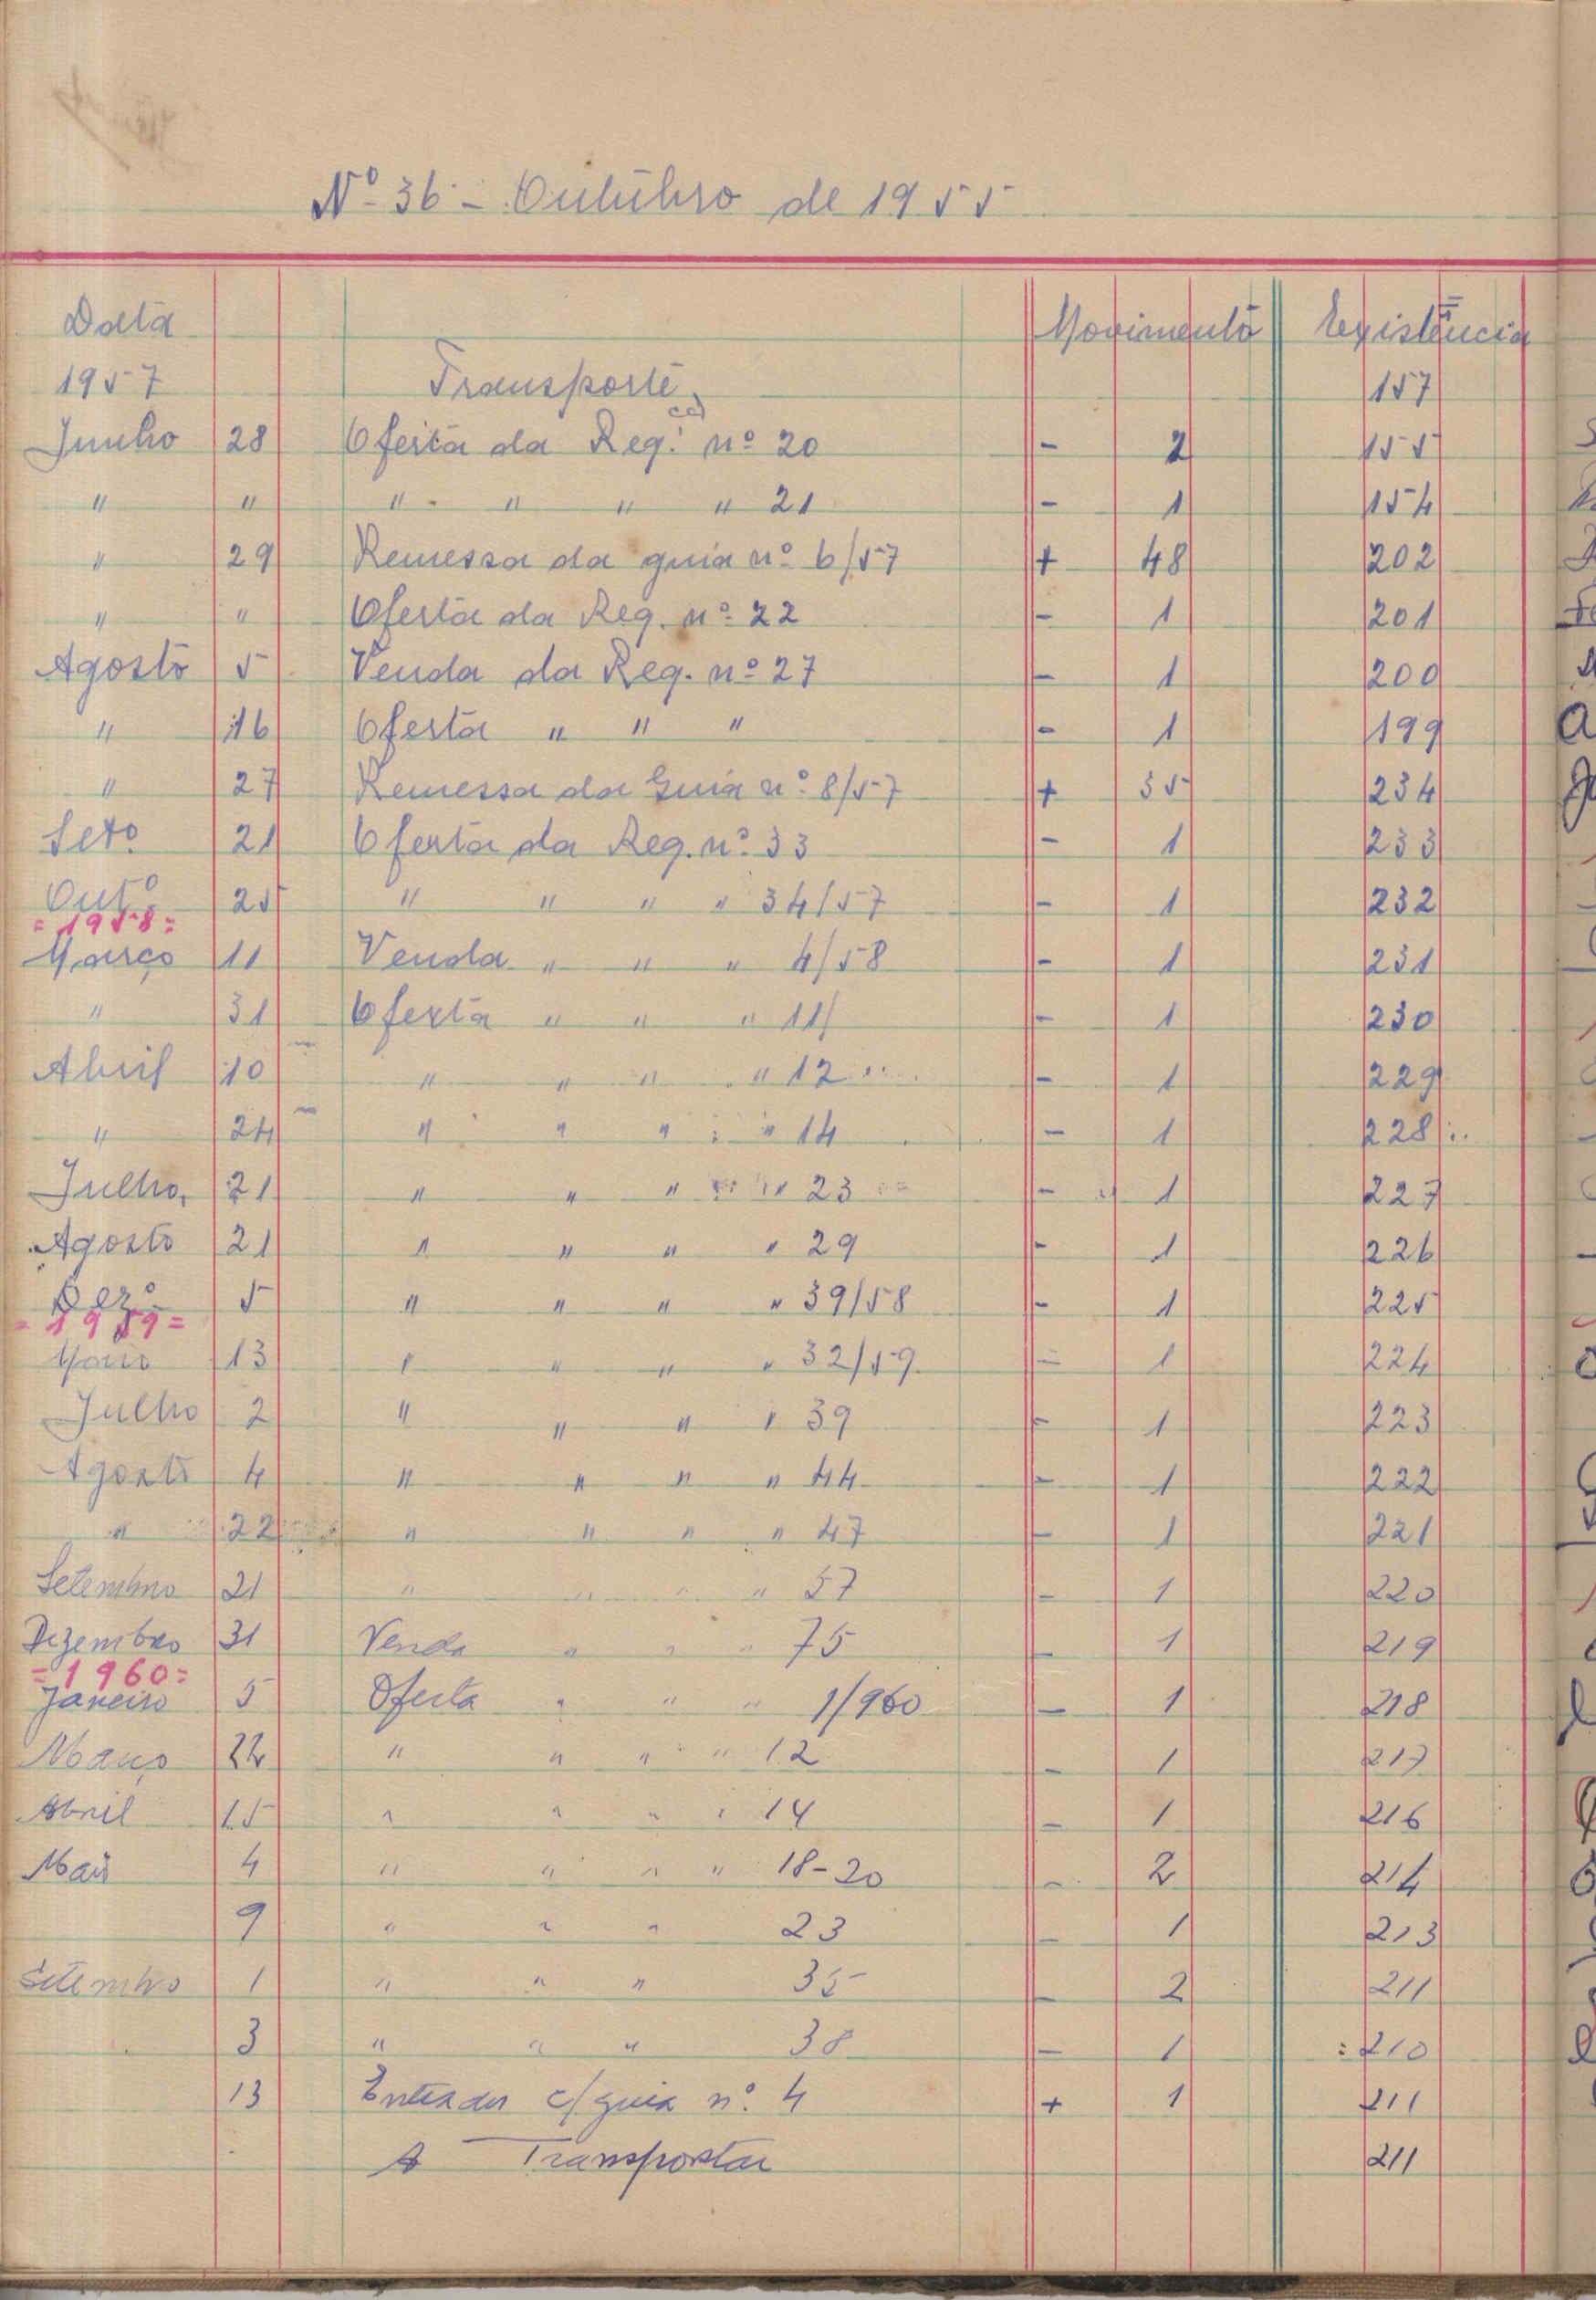 Nº 36 - Outubro de 1955
Data Movimento Existência
1957 Transporte 157
Junho 28 Oferta da Reg. nº 20 - 2 155
" " " " " " 21 - 1 154
" 29 Remessa da guia nº 6/57 + 48 202
" " Oferta da Reg. nº 22 - 1 201
Agosto 5 Venda da Reg. nº 27 - 1 200
" 16 Oferta " " " - 1 199
" 27 Remessa da Guia nº 8/57 + 35 234
Setº 21 Oferta da Reg. nº 33 - 1 233
Outº 25 " " " " 34/57 - 1 232
= 1958 =
Março 11 Venda " " " 4/58 - 1 231
" 31 Oferta " " " 11/ - 1 230
Abril 10 " " " " 12 - 1 229
" 24 " " " " 14 - 1 228
Julho 21 " " " " 23 - 1 227
Agosto 21 " " " " 29 - 1 226
Dezº 5 " " " " 39/58 - 1 225
= 1959 =
Maio 13 " " " " 32/59 - 1 224
Julho 2 " " " " 39 - 1 223
Agosto 4 " " " " 44 - 1 222
" 22 " " " " 47 - 1 221
Setembro 21 " " " " 57 - 1 220
Dezembro 31 Venda " " " 75 - 1 219
= 1960 =
Janeiro 5 Oferta " " " 1/960 - 1 218
Março 22 " " " " 12 - 1 217
Abril 15 " " " " 14 - 1 216
Maio 4 " " " " 18-20 - 2 214
9 " " " 23 - 1 213
Setembro 1 " " " 35 - 2 211
3 " " " 38 - 1 210
13 Entrada c/ guia nº 4 + 1 211
A Transportar 211